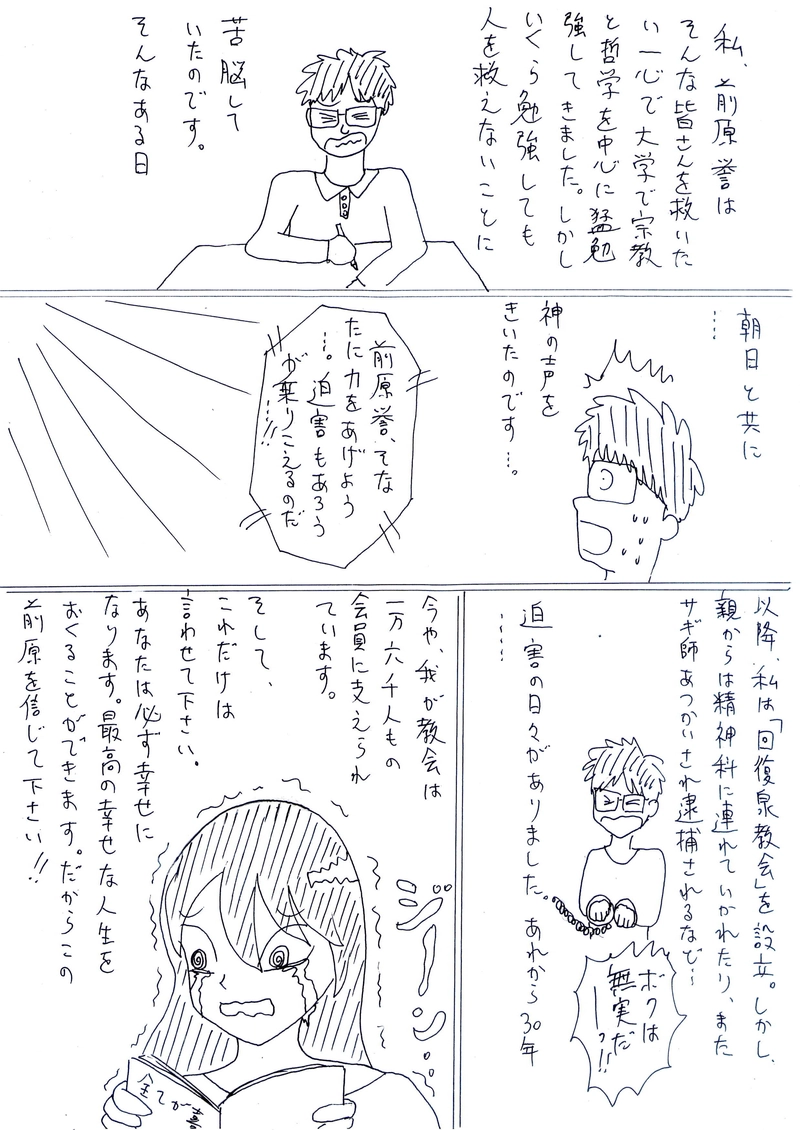 私、前原誉は
そんな皆さんを救いた
い一心で大学で宗教
と哲学を中心に猛勉
強してきました。しかし
いくら勉強しても
人を救えないことに
苦脳して
いたのです。
そんなある日
朝日と共に
……
神の声を
きいたのです…。
前原誉、そな
たに力をあげよう
…。迫害もあろう
が乗りこえるのだ
…!!
以降、私は「回復泉教会」を設立。しかし、
親からは精神科に連れていかれたり、また
サギ師あつかいされ逮捕されるなど~
迫害の日々がありました。あれから30年
……
ボクは
無実だ
ーっ!!
今や、我が教会は
一万六千人もの
会員に支えられ
ています。
そして、
これだけは
言わせて下さい。
あなたは必ず幸せに
なります。最高の幸せな人生を
おくることができます。だからこの
前原を信じて下さい!!
ジーン…
全てが